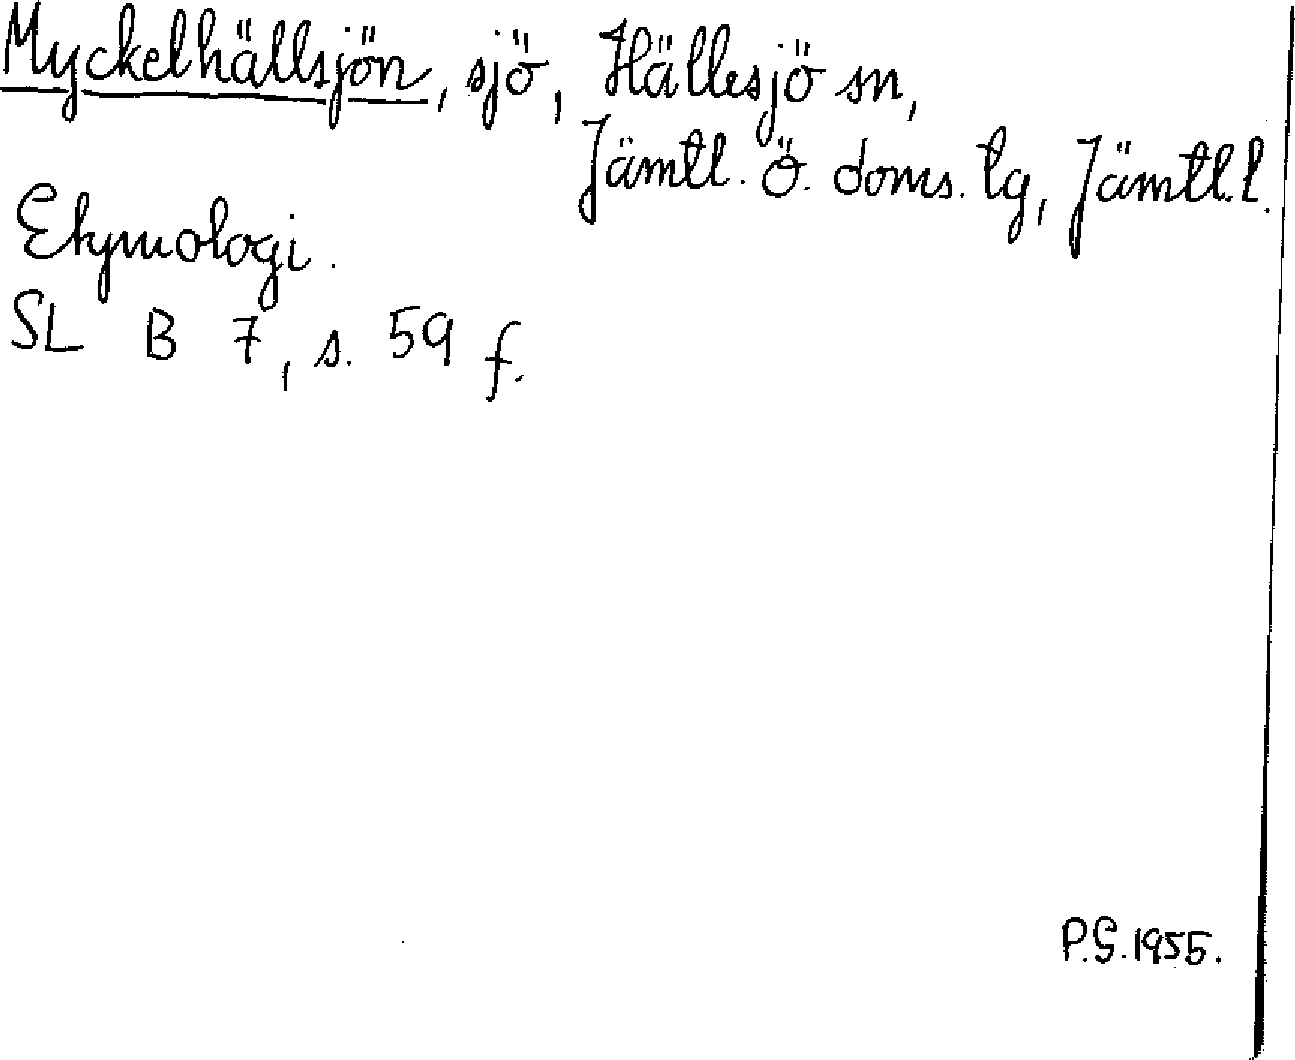 Myckelhällsjön, sjö, Hällesjö sn,
Jämtl. ö. doms. tg, Jämtl. l.
Etymologi.
SL B 7, s. 59 f.
P.G. 1955.